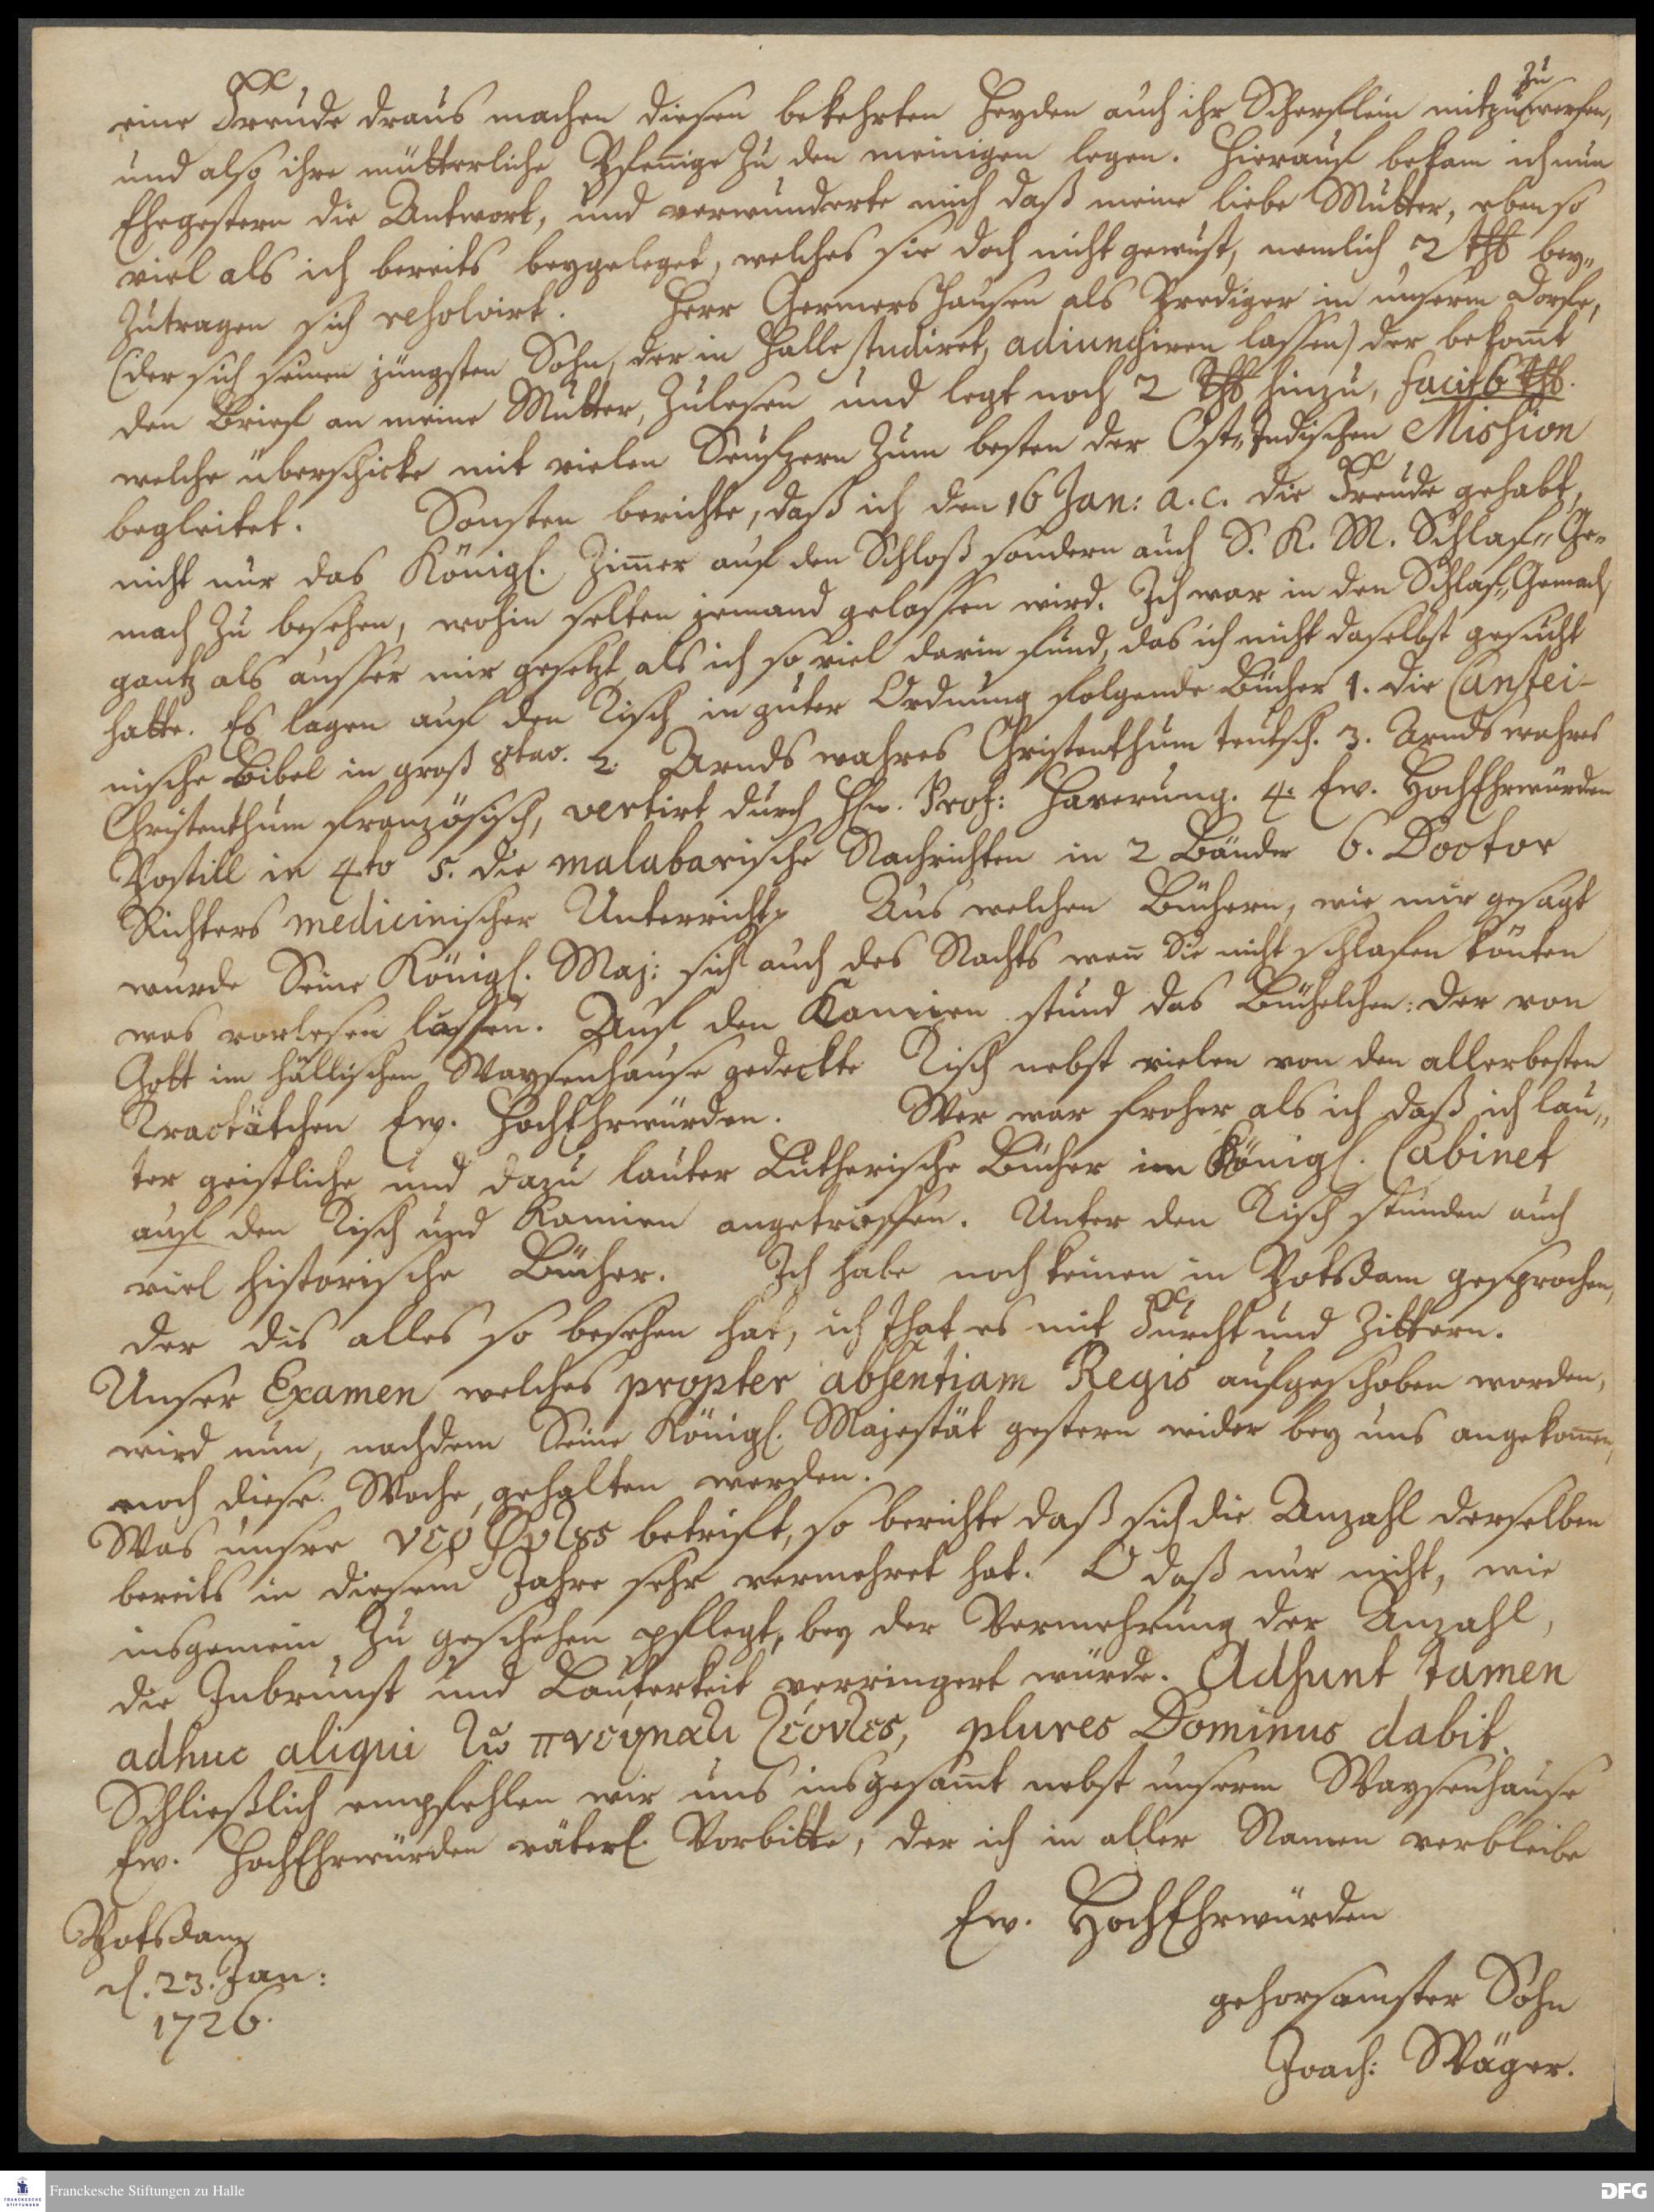 eine Freude draus machen diesen bekehrten Heyden auch ihr Scherflein mit zu zuwerfen,
und also ihre mütterliche Pfenige zu den meinigen legen. Hierauf bekam ich nun
Ehegestern die Antwort, und verwunderte mich daß meine liebe Mutter, eben so
viel als ich bereits beygeleget, welches sie doch nicht gewust, nemlich 2 rthl bey„
zutragen sich resolvirt. Herr Germershausen als Prediger in unserm Dorfe,
(der sich seinen jüngsten Sohn, der in Halle studiret, adiungiren lassen) der bekomt
den Brief an meine Mutter, zulesen und legt noch 2 rthl hinzu, facit 6 rthl.
welche überschicke mit vielen Seufzern zum besten der Ost„Indischen Mission
begleitet. Sonsten berichte, daß ich den 16 Jan: a. c. die Freude gehabt,
nicht nur das Königl. Zimer auf den Schloß sondern auch S. K. M. Schlaf„Ge„
mach zu besehen, wohin selten jemand gelassen wird. Ich war in den Schlaf„Gemach
gantz als ausser mir gesetzt, als ich so viel darin fund, das ich nicht daselbst gesucht
hatte. Es lagen auf den Tisch in guter Ordnung folgende Bücher 1. die Canstei-
nische Bibel in groß 8tav. 2. Arnds wahres Christenthum teutsch. 3. Arnds wahres
Christenthum französisch, vertirt durch Hn. Prof: Haverung. 4. Ew. HochEhrwürden
Postill in 4to 5. die malabarische Nachrichten in 2 Bänder 6. Doctor
Richters medicinischer Unterricht. Aus welchen Büchern, wie mir gesagt
wurde Seine Königl. Maj: sich auch des Nachts wen Sie nicht schlafen könten
was vorlesen lassen. Auf den Kamien stund das Büchelchen: der von
Gott im hällischen Waysenhause gedeckte Tisch nebst vielen von den allerbesten
Tractätchen Ew. HochEhrwürden. Wer war froher als ich daß ich lau„
ter geistliche und dazu lauter Lutherische Bücher im Königl. Cabinet
auf den Tisch und Kamien angetroffen. Unter den Tisch stunden auch
viel historische Bücher. Ich habe noch keinen in Potsdam gesprochen,
der dis alles so besehen hat, ich that es mit Furcht und Zittern.
Unser Examen welches propter absentiam Regis aufgeschoben worden,
wird nun, nachdem Seine Königl. Majestät gestern wider bey uns angekomen,
noch diese Woche gehalten werden.
Was unsre νεοφύτ betrift, so berichte daß sich die Anzahl derselben
bereits in diesem Jahre sehr vermehret hat. O daß nur nicht, wie
insgemein zu geschehen pflegt, bey der Vermehrung der Anzahl,
die Inbrunst und Lauterkeit verringert würde. Adsunt tamen
adhuc aliqui τῶ πνέυματι ζέοντες, plures Dominus dabit.
Schließlich empfehlen wir uns insgesamt nebst unserm Waysenhause
Ew. HochEhrwürden väterl. Vorbitte, der ich in aller Namen verbleibe
Ew. HochEhrwürden
Potsdam
d. 23. Jan:
1726.
gehorsamster Sohn
Joach: Wäger.
Franckesche Stiftungen zu Halle
FRANCKESCHE STIFTUNGEN
DFG